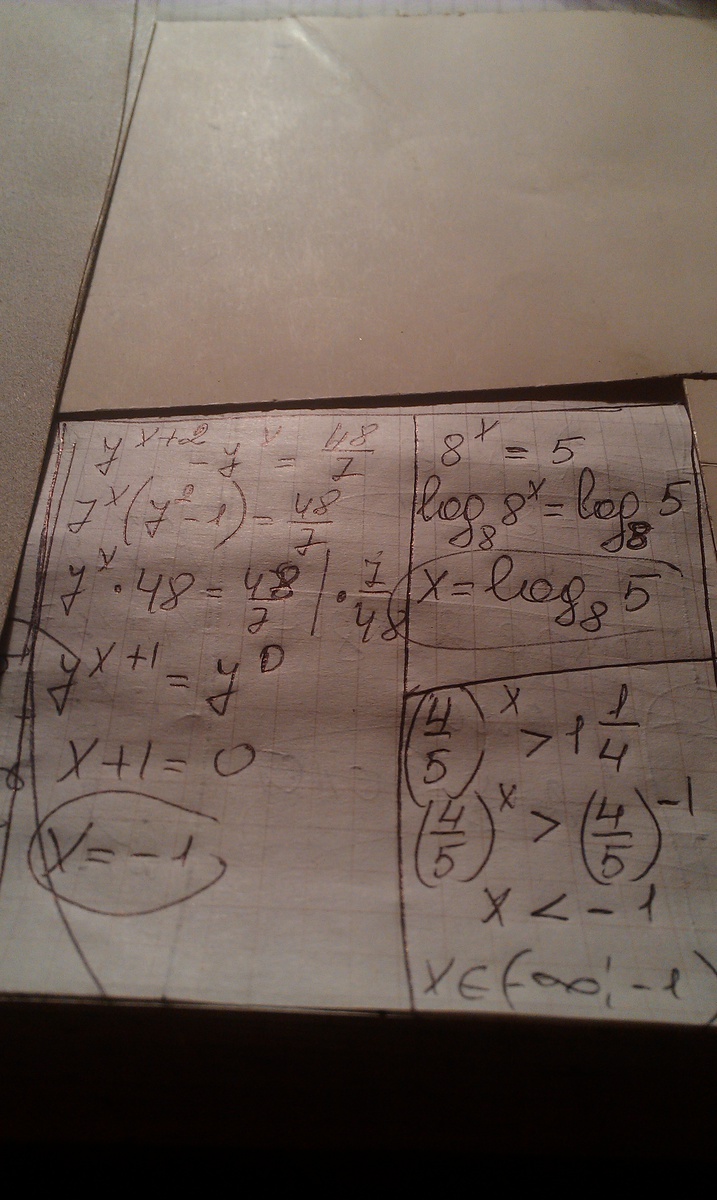 7^(x+2) - 7^x = 48/7
7^x (7^2 - 1) = 48/7
7^x · 48 = 48/7 | · 7/48
7^(x+1) = 7^0
x+1 = 0
x = -1
8^x = 5
log_8 8^x = log_8 5
x = log_8 5
(4/5)^x > 1 1/4
(4/5)^x > (4/5)^(-1)
x < -1
x ∈ (-∞; -1)